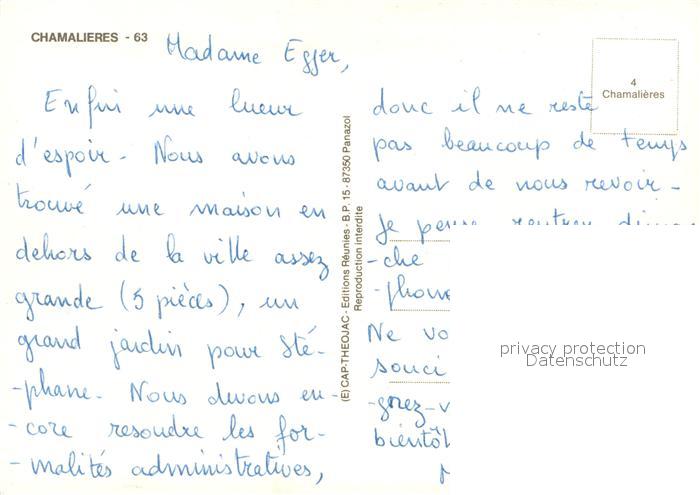 CHAMALIERES - 63
Madame Egger,
Enfin une lueur
d'espoir - Nous avons
trouvé une maison en
dehors de la ville assez
grande (5 pièces), un
grand jardin pour Sté-
-phane. Nous devons en-
-core resoudre les for-
-malités administratives,
(E) CAP-THEOJAC - Editions Réunies - B.P. 15 - 87350 Panazol
Reproduction interdite
4
Chamalières
donc il ne reste
pas beaucoup de temps
avant de nous revoir -
Je pense rentrer diman
-che
-phone
Ne vo
souci
-gnez-v
bientôt
privacy protection
Datenschutz